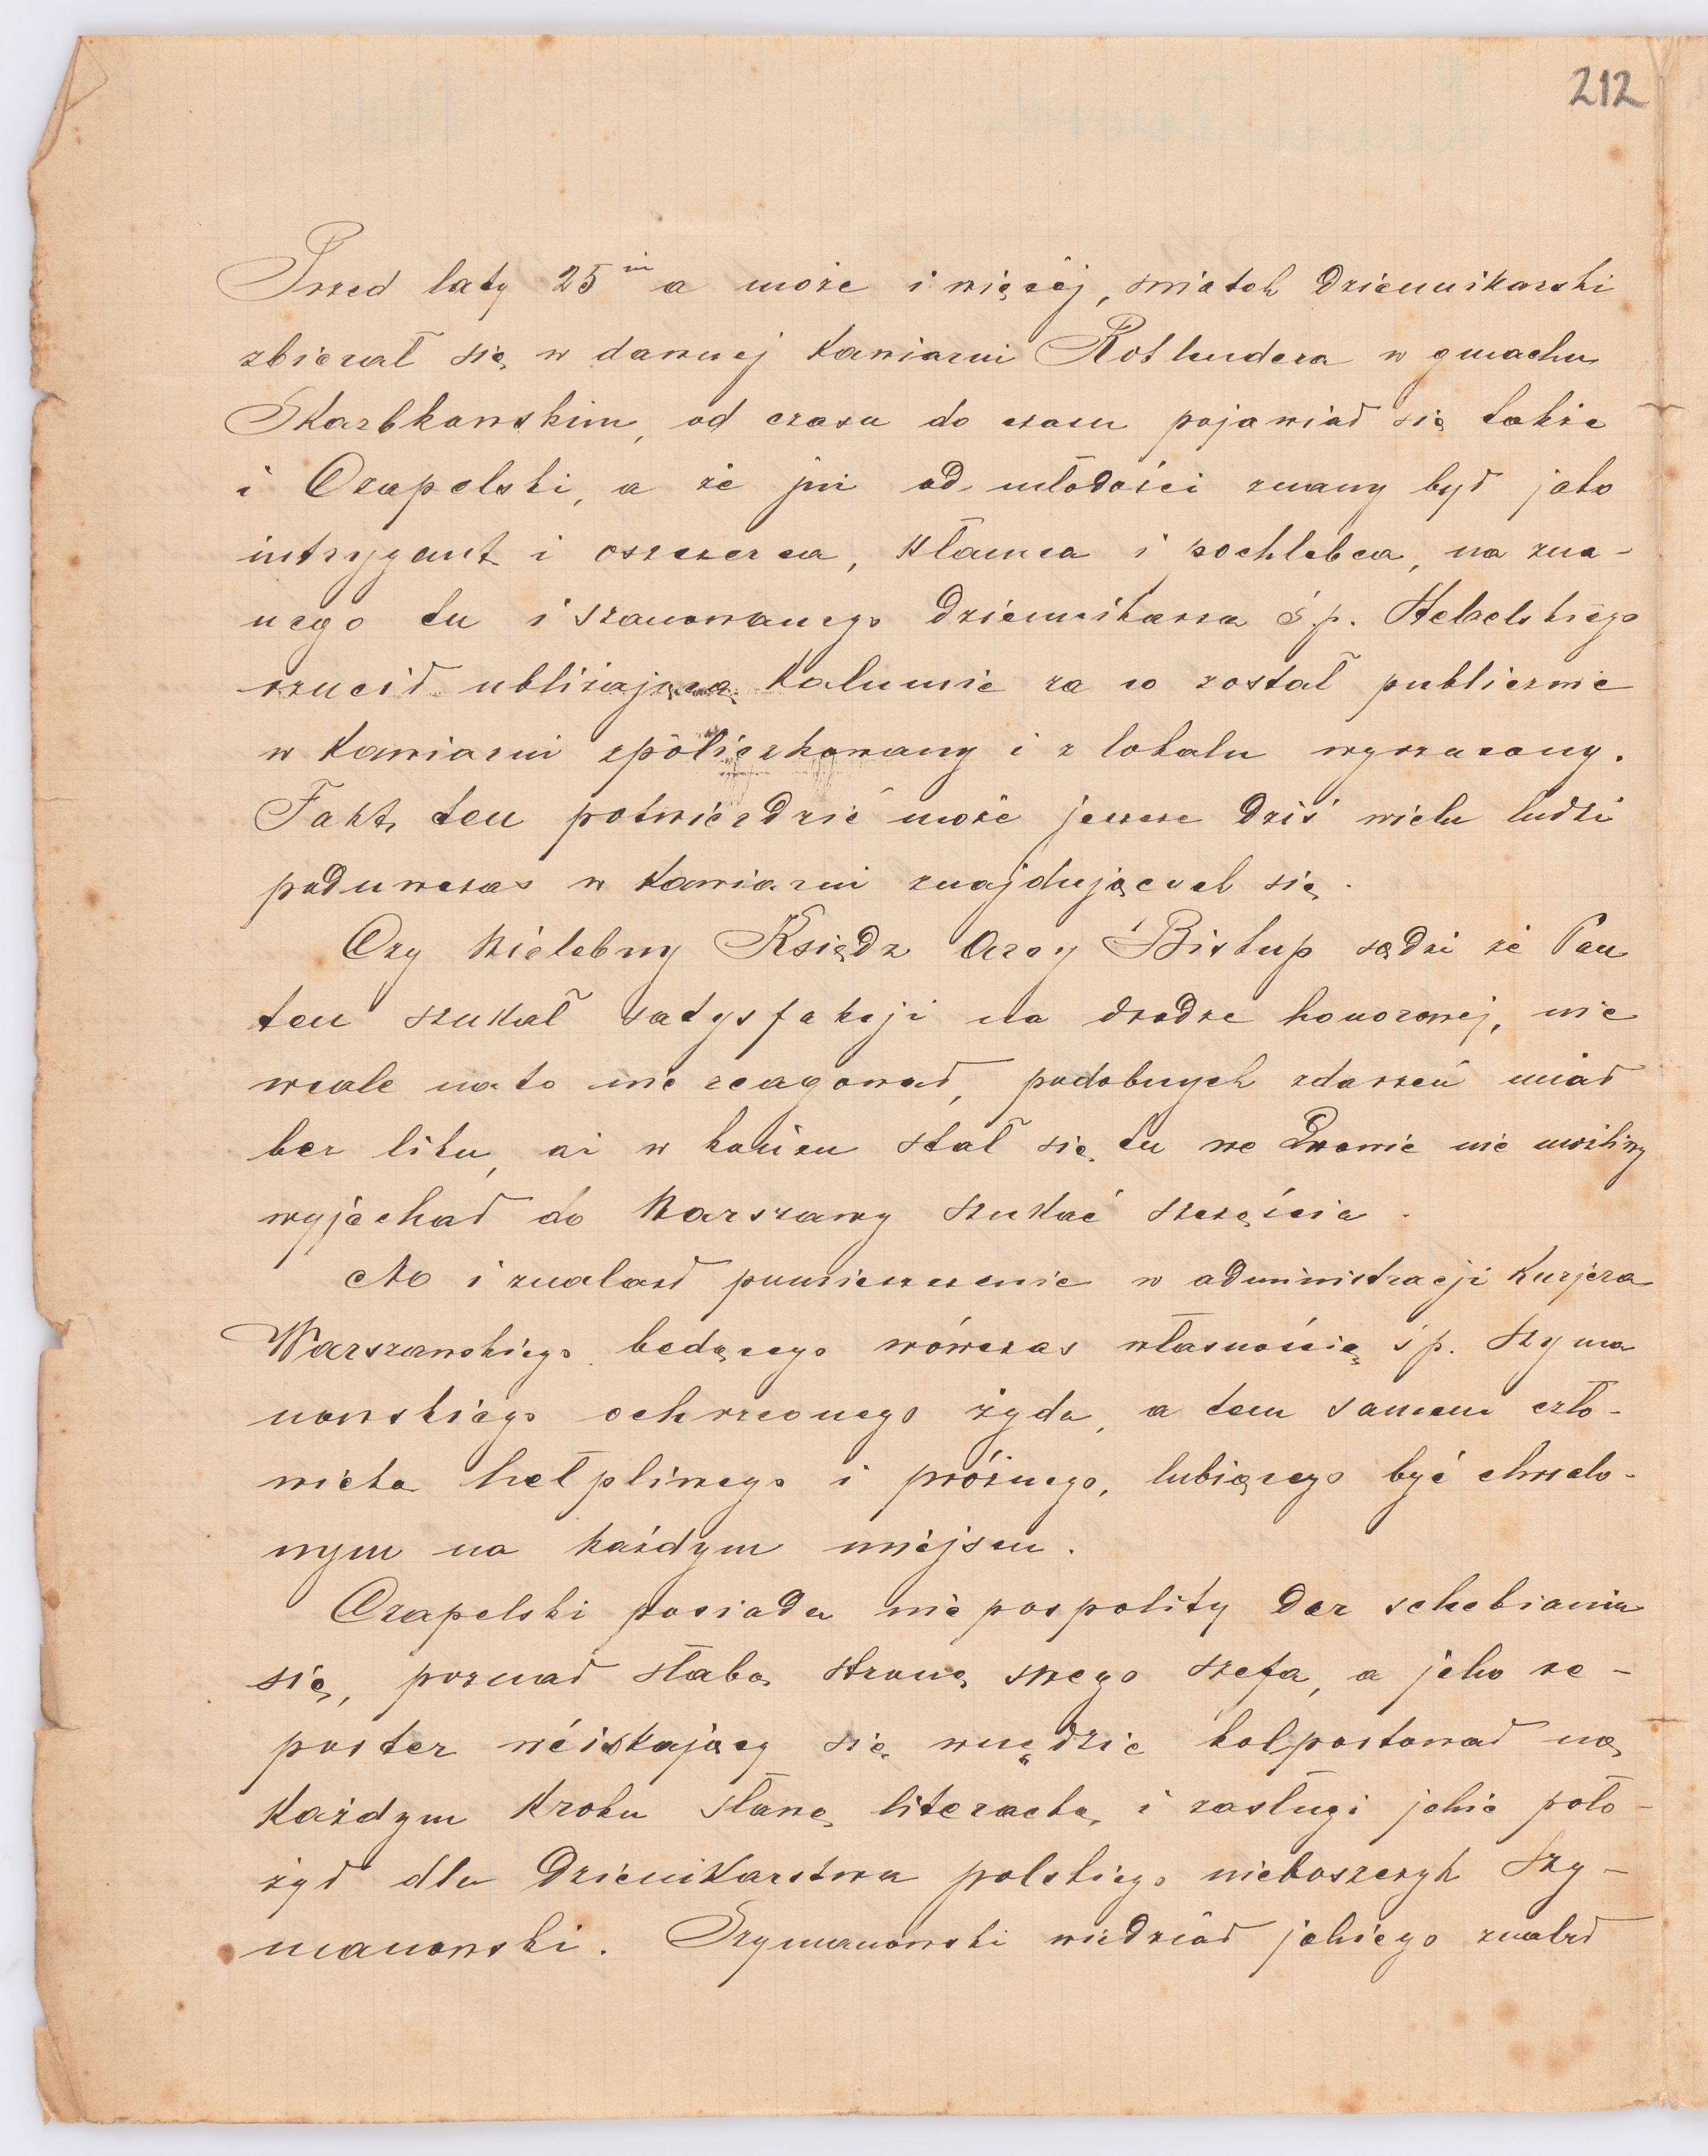 212
Przed laty 25iu a może i więcéj, światek dziennikarski
zbierał się w dawnej Kawiarni Rothlendera w gmachu
Skarbkowskim, od czasu do czasu pojawiał się także
i Czapelski, a że już od młodości znany był jako
intrygant i oszczerca, kłamca i pochlebca, na zna-
nego tu i szanowanego dziennikarza ś.p. Stebelskiego
rzucił ubliżającą kalumnie za co został publicznie
w Kawiarni spoliczkowany i z lokalu wyrzucony.
Fakt ten potwierdzić może jeszcze dziś wielu ludzi
poduwczas w Kawiarni znajdujących się.
Czy Wielebny Ksiądz Arcy Biskup sądzi że Pan
ten szukał satysfakcji na drodze honorowej, nie
wcale na to nie reagował, podobnych zdarzeń miał
bez liku, aż w końcu stał się tu we Lwowie nie możliwy
wyjechał do Warszawy szukać szczęścia.
No i znalazł pomieszczenie w administracji Kurjera
Warszawskiego będącego wówczas własnością ś p. Szyma
nowskiego ochrzconego żyda, a tem samem czło-
wieka hełpliwego i próżnego, lubiącego być chwalo-
nym na każdym miejscu.
Czapelski posiada niepospolity dar schebiania
się, poznał słabą stronę swego szefa, a jako re-
porter wciskający się wszędzie kolportował na
każdym kroku sławę literacką, i zasługi jakie poło-
żył dla dziennikarstwa polskiego nieboszczyk Szy-
manowski. Szymanowski wiedział jakiego znalazł